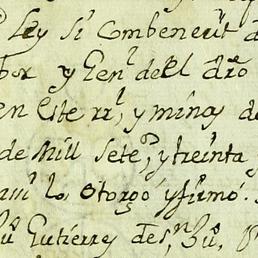 Ley si combenerit d
bor y Gen.l del d.ro
en este rr.l y minas de
de mill sete.s y treinta y
aui lo otorgó y firmó.
Gutierrez de s.n Ju.